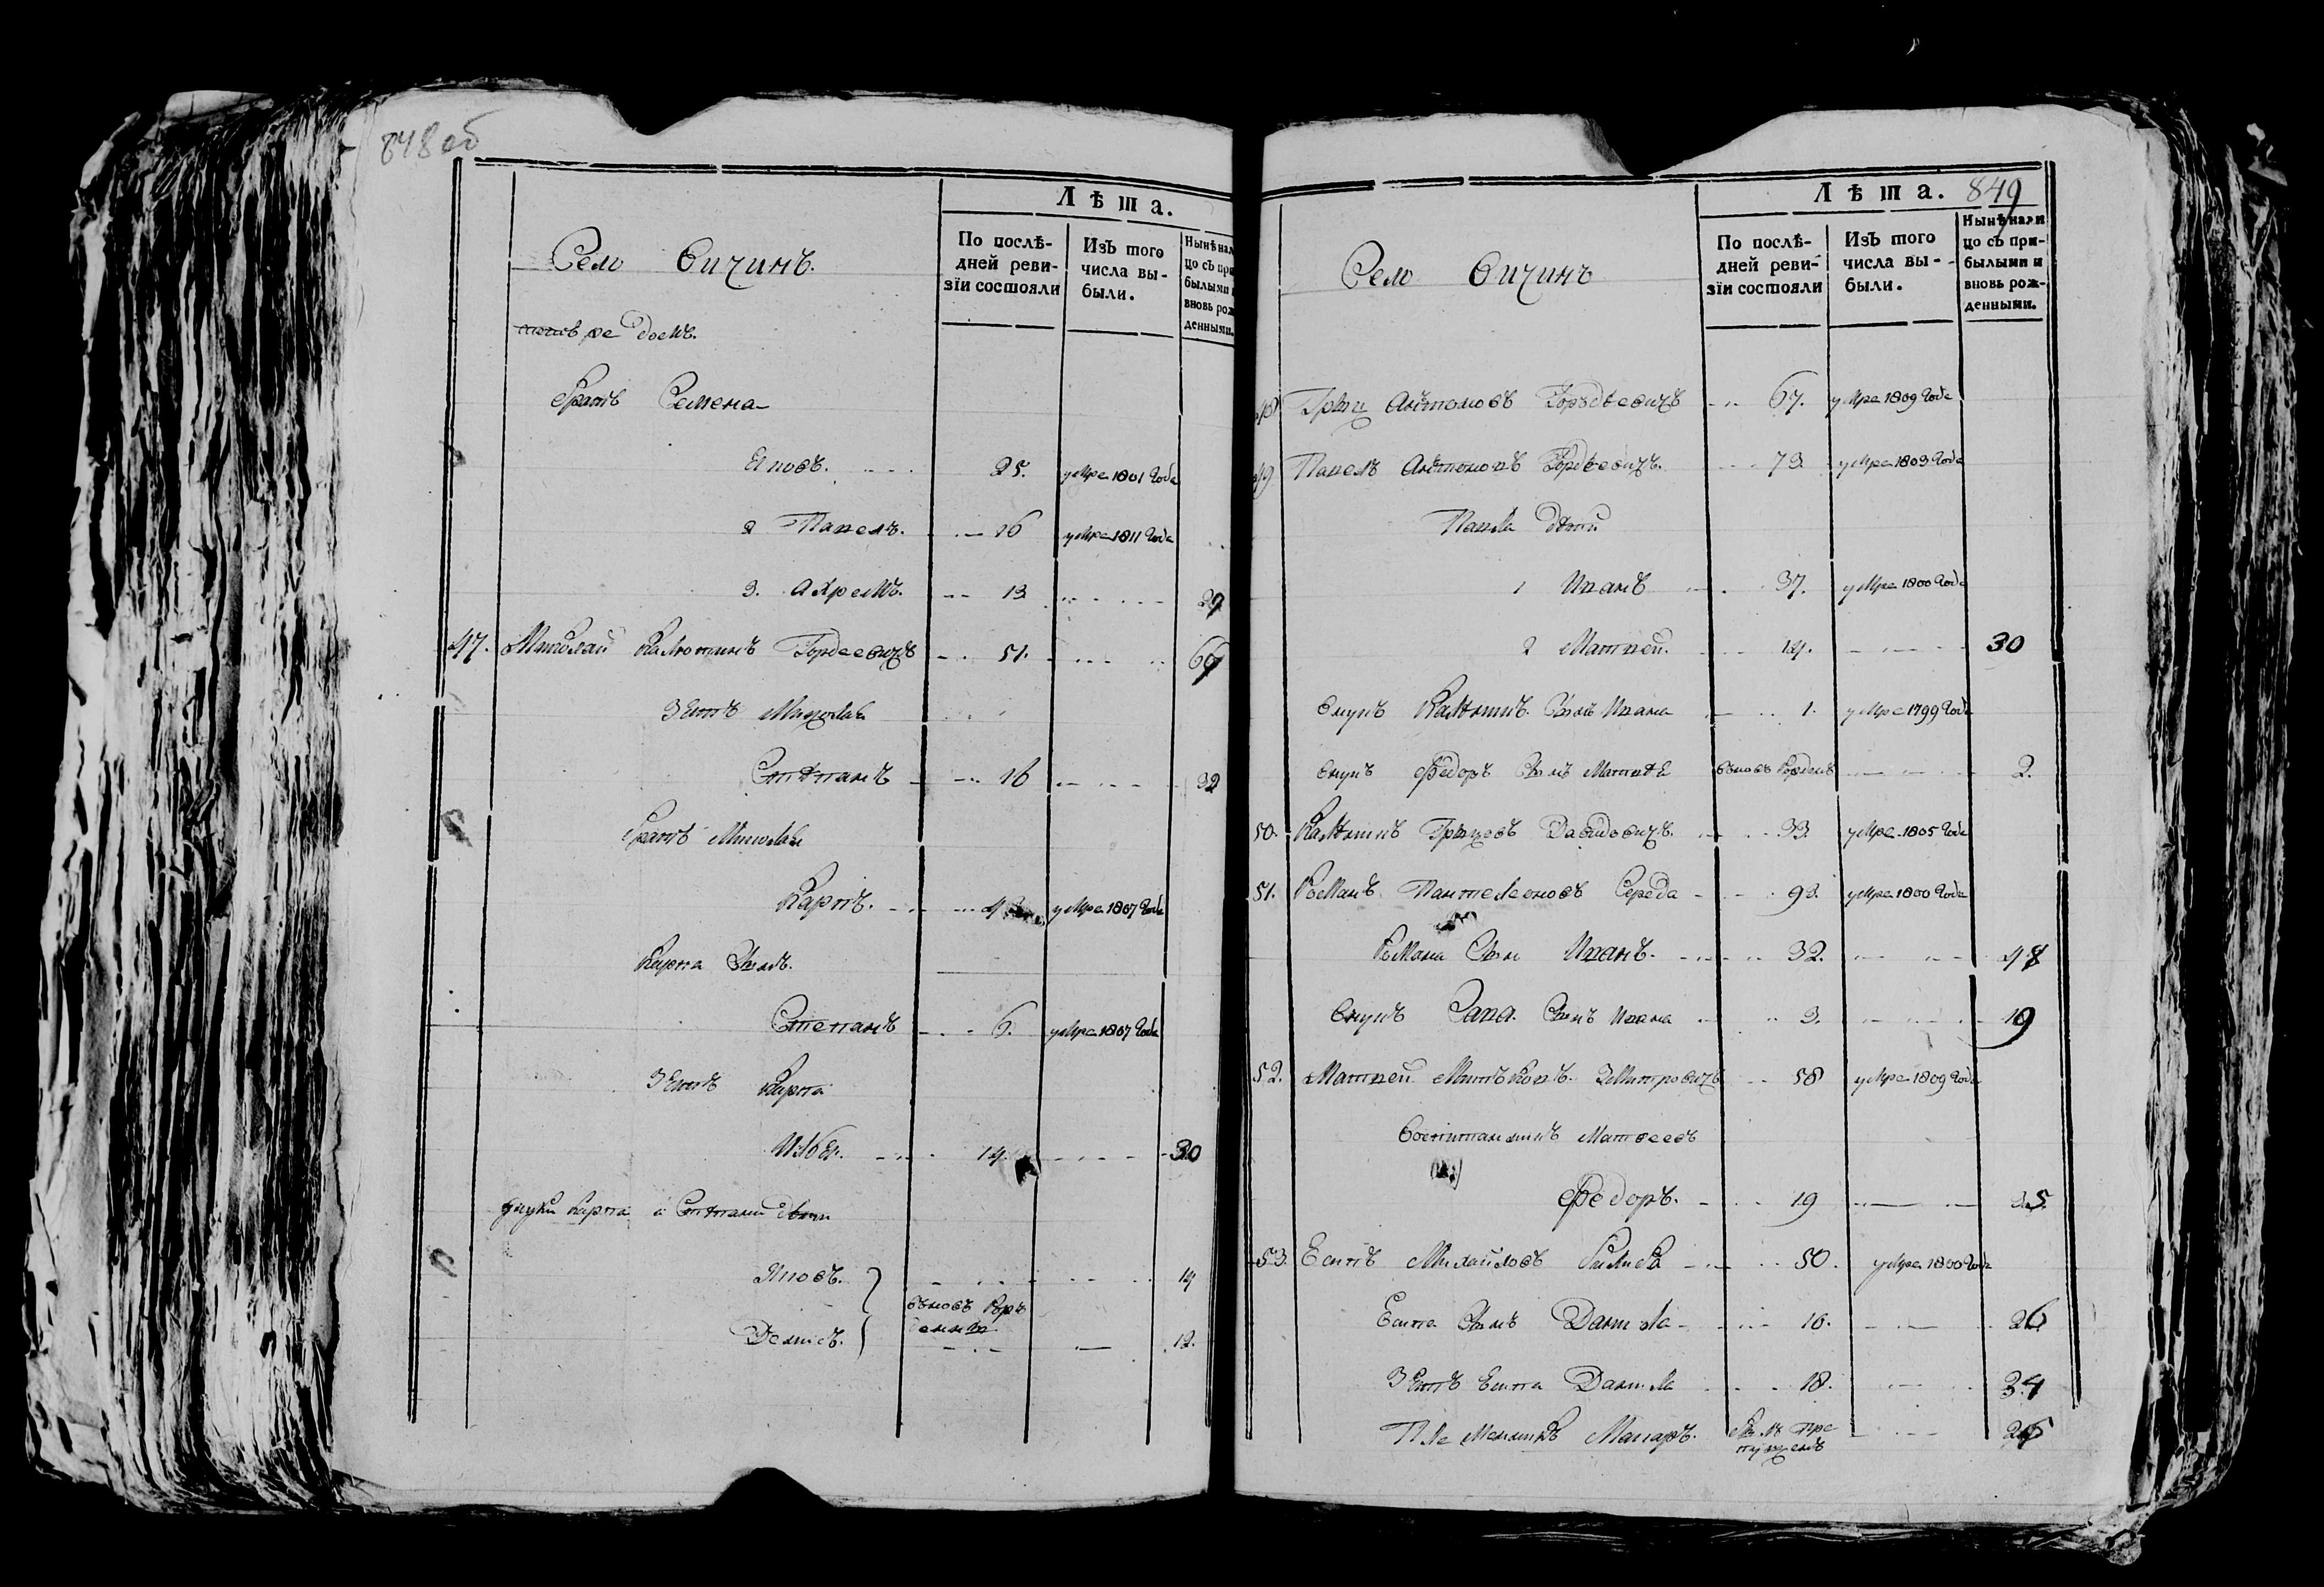 848 об
Лѣта.
Село Вичинъ.
По послѣ-
дней реви-
зїи состояли
Изъ того
числа вы-
были.
Нынѣ нали
цо съ при
былыми и
вновь рож
денными.
же домѣ.
братъ Семена
Яковъ. 25. умре 1801 года
2 Павелъ. 16 умре 1811 года
3. Ахремъ. 13 29
47. Миколай Гордеевичъ 51. 67
Зять Миколая
Стѣпанъ 16 32
братъ Миколая
Карпъ. умре 1807 года
Карпа сынъ.
Степанъ 6. умре 1807 года
Зять Карпа
Илья. 14. 30
внуки Карпа а Стѣпана дѣти
Яковъ. 14
вновь рож
денны
Денисъ. 12.
Лѣта. 849
Село Вичинъ
По послѣ-
дней реви-
зїи состояли
Изъ того
числа вы-
были.
Нынѣ нали
цо съ при-
былыми и
вновь рож-
денными.
48 Грыц Антоновъ Гордѣевичъ 67. умре 1809 года
49 Павелъ Антоновъ Гордѣевичъ. 73 умре 1803 года
Павла дѣти
1 Иванъ 37. умре 1800 года
2 Матвей. 14. 30
Внукъ сынъ Ивана 1. умре 1799 года
Внукъ Федоръ сынъ Матвѣя вновь рожденъ 2.
50. Грыцовъ Давидовичъ. 33 умре 1805 года
51. Романъ Пантелеоновъ Середа 92. умре 1800 года
Романа сын Иванъ. 32. 48
Внукъ Сава сынъ Ивана 3. 19
52. Матвей Змитровичъ 58 умре 1809 года
Воспитанникъ Матвеевъ
Федоръ. 19 35.
53. Есипъ Михайловъ 50. умре 1800 года
Есипа сынъ Данила 10. 26
Зять Есипа Данила 18. 34
Племянникъ Макаръ. былъ про
пущенъ